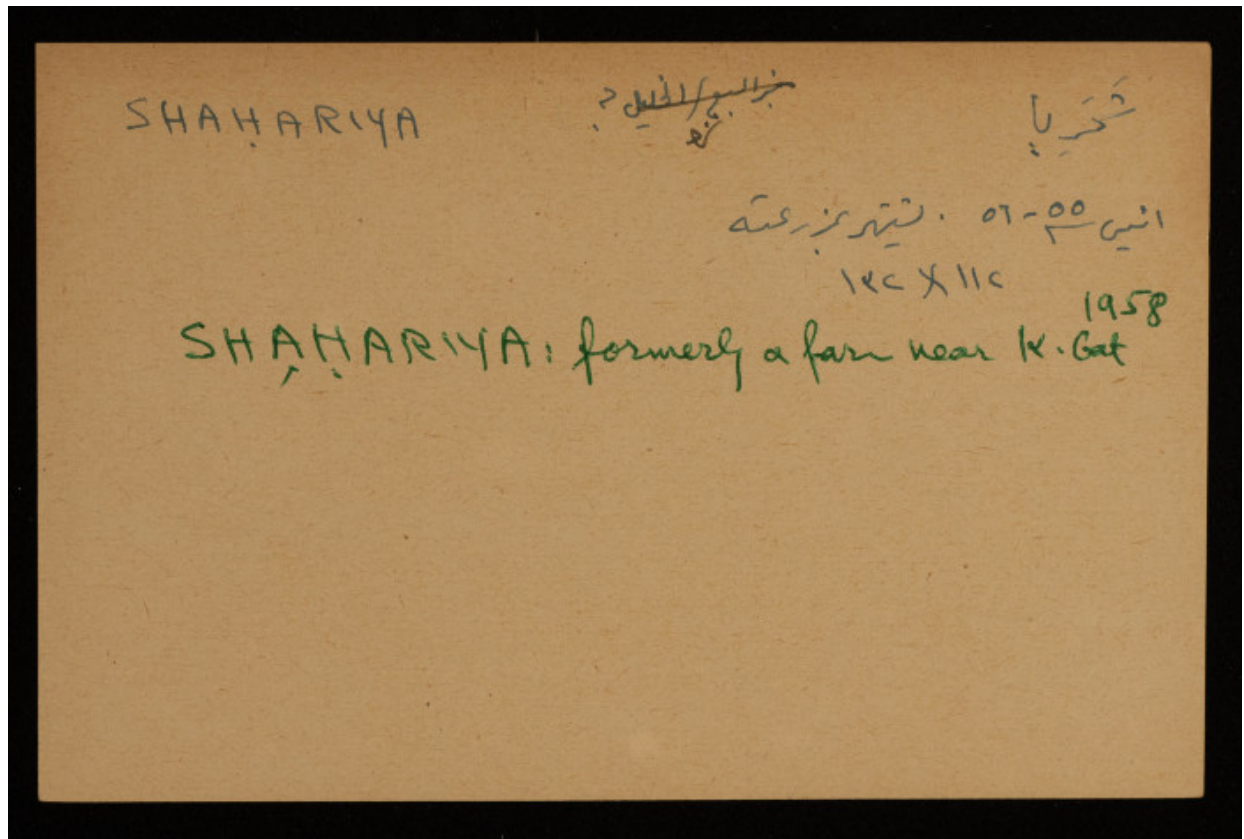 SHAḤARIYA بئر السبع / الخليل ? شَحَرِيا
غزة
انيس ٥٥-٥٦ . تشتهر بمزرعته
١٣٢ X ١١٢
1958
SHAḤARIYA: formerly a farm near K. Gat